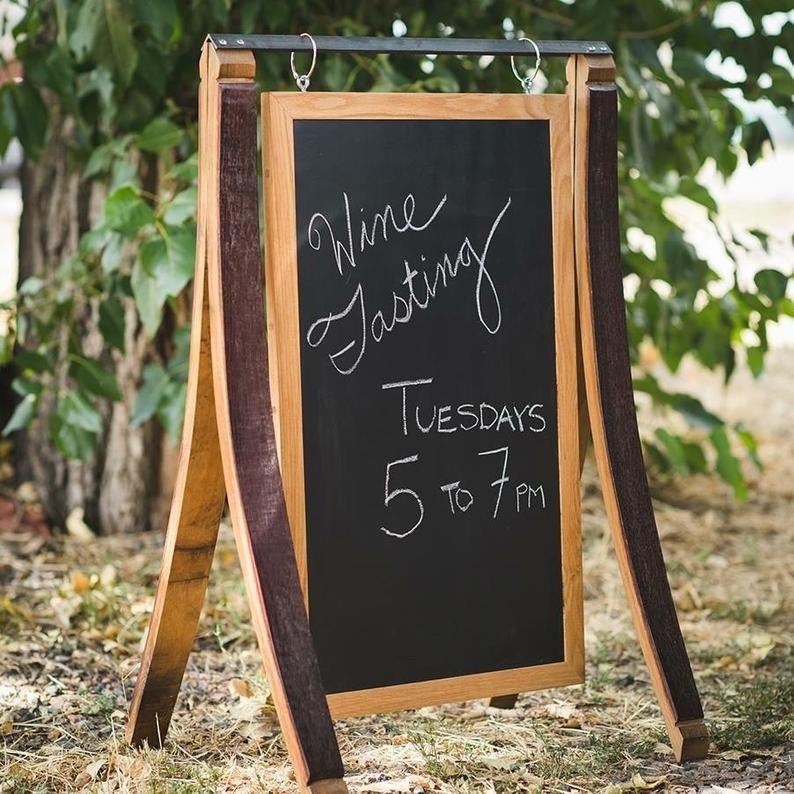 Wine
Tasting
TUESDAYS
5 TO 7 PM